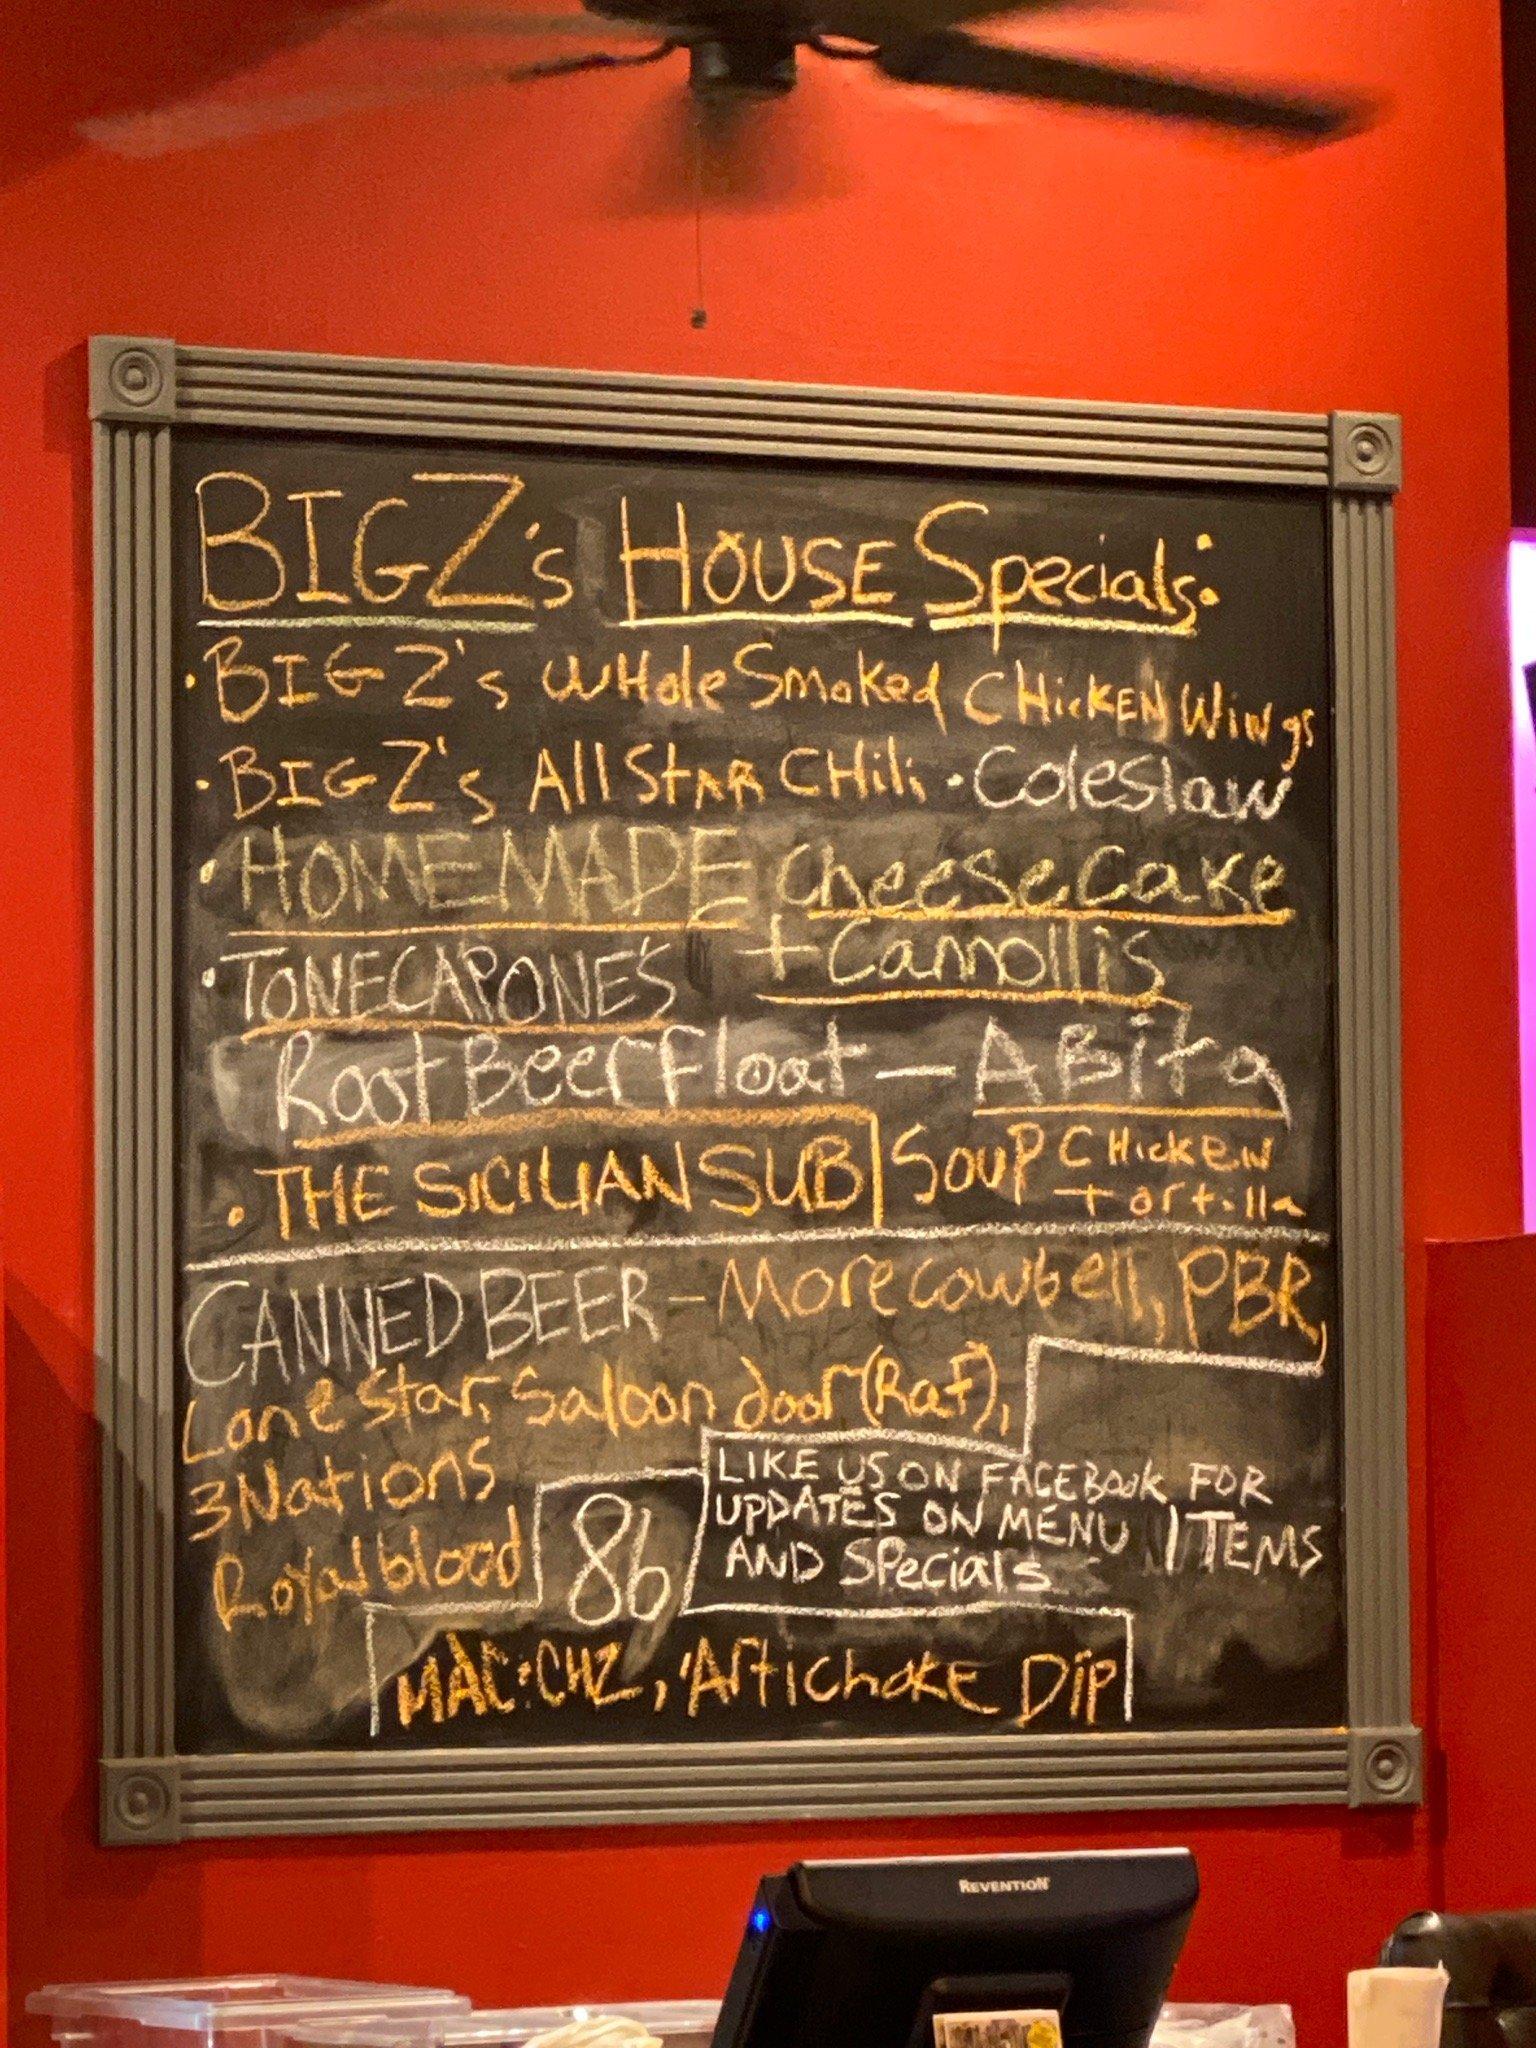 BIGZ's HOUSE Specials:
• BIG Z's WHole Smoked CHicKEN Wings
• BIG Z's All StAR CHili • Coleslaw
• HOMEMADE CheeseCake
+ Cannollis
• TONECAPONE'S
Root Beer Float — ABita
• THE SICILIAN SUB
SOUP CHicKEN
tortilla
CANNED BEER - More cowbell, PBR,
Lone Star, Saloon door (Raf),
3 Nations
Royal blood
86
LIKE US ON FACEBOOK FOR
UPDATES ON MENU ITEMS
AND Specials
MAC & CHZ, Artichoke Dip
REVENTION